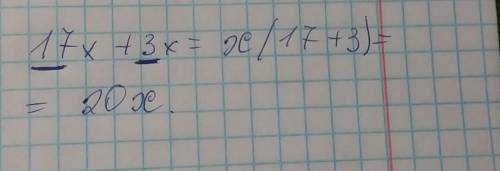 17x + 3x = x(17+3)=
= 20x.